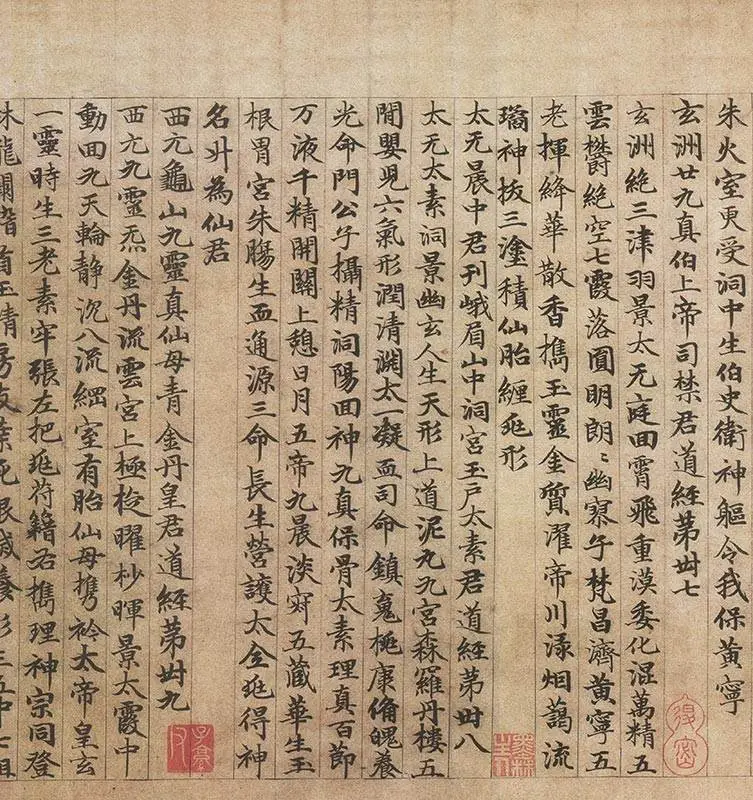 朱火室更受洞中生伯史衛神軀令我保黃寧
玄洲廿九真伯上帝司禁君道經第卅七
玄洲絕三津羽景太无庭回霄飛重漠委化混萬精五
雲欝絕空七霞落圓明朗〻幽寮午梵昌濟黃寧五
老揮絳華散香攜玉靈金質濯帝川淥烟藹流
璚神拔三塗積仙胎纏死形
太无晨中君刊峨眉山中洞宮玉戶太素君道經第卅八
太无太素洞景幽玄人生天形上道泥丸九宮森羅丹樓五
間嬰兒六氣形潤清淵太一凝血司命鎮魂桃康俻魄養
光命門公子攝精洞陽回神九真保骨太素理真百節
万液千精開關上憩日月五帝九晨淡冥五藏華生玉
根胃宮朱腸生血通源三命長生營護太仝死得神
名廾為仙君
西元龜山九靈真仙母青金丹皇君道經第卅九
西元九靈炁金丹流雲宮上極捡曜杪暉景太霞中
動回九天輪靜沉八流綑室有胎仙母携袊太帝皇玄
一靈時生三老素牢張左把死苻籍右攜理神宗同登